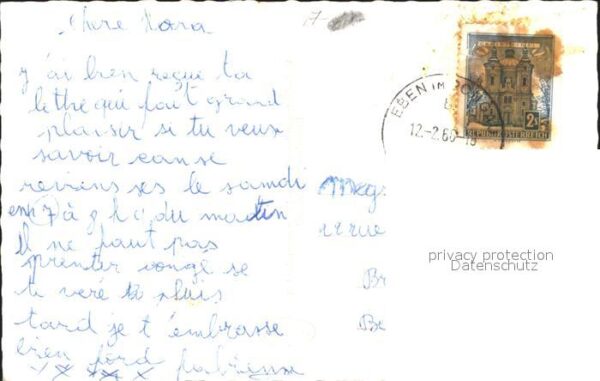 Chère Nora
j'ai bien reçue ta
lettre qui fait grand
plaisir si tu veux
savoir can se
reviens ses le samdi
enh 7 à 8 h c du matin
Il ne faut pas
prenter congé se
te veré plus
tard je t'embrasse
bien ford fabienne
X X X X X
17-
EBEN IM PON
12.-2.60-18
2S
REPUBLIK ÖSTERREICH
Meg
rue
Br
Be
privacy protection
Datenschutz